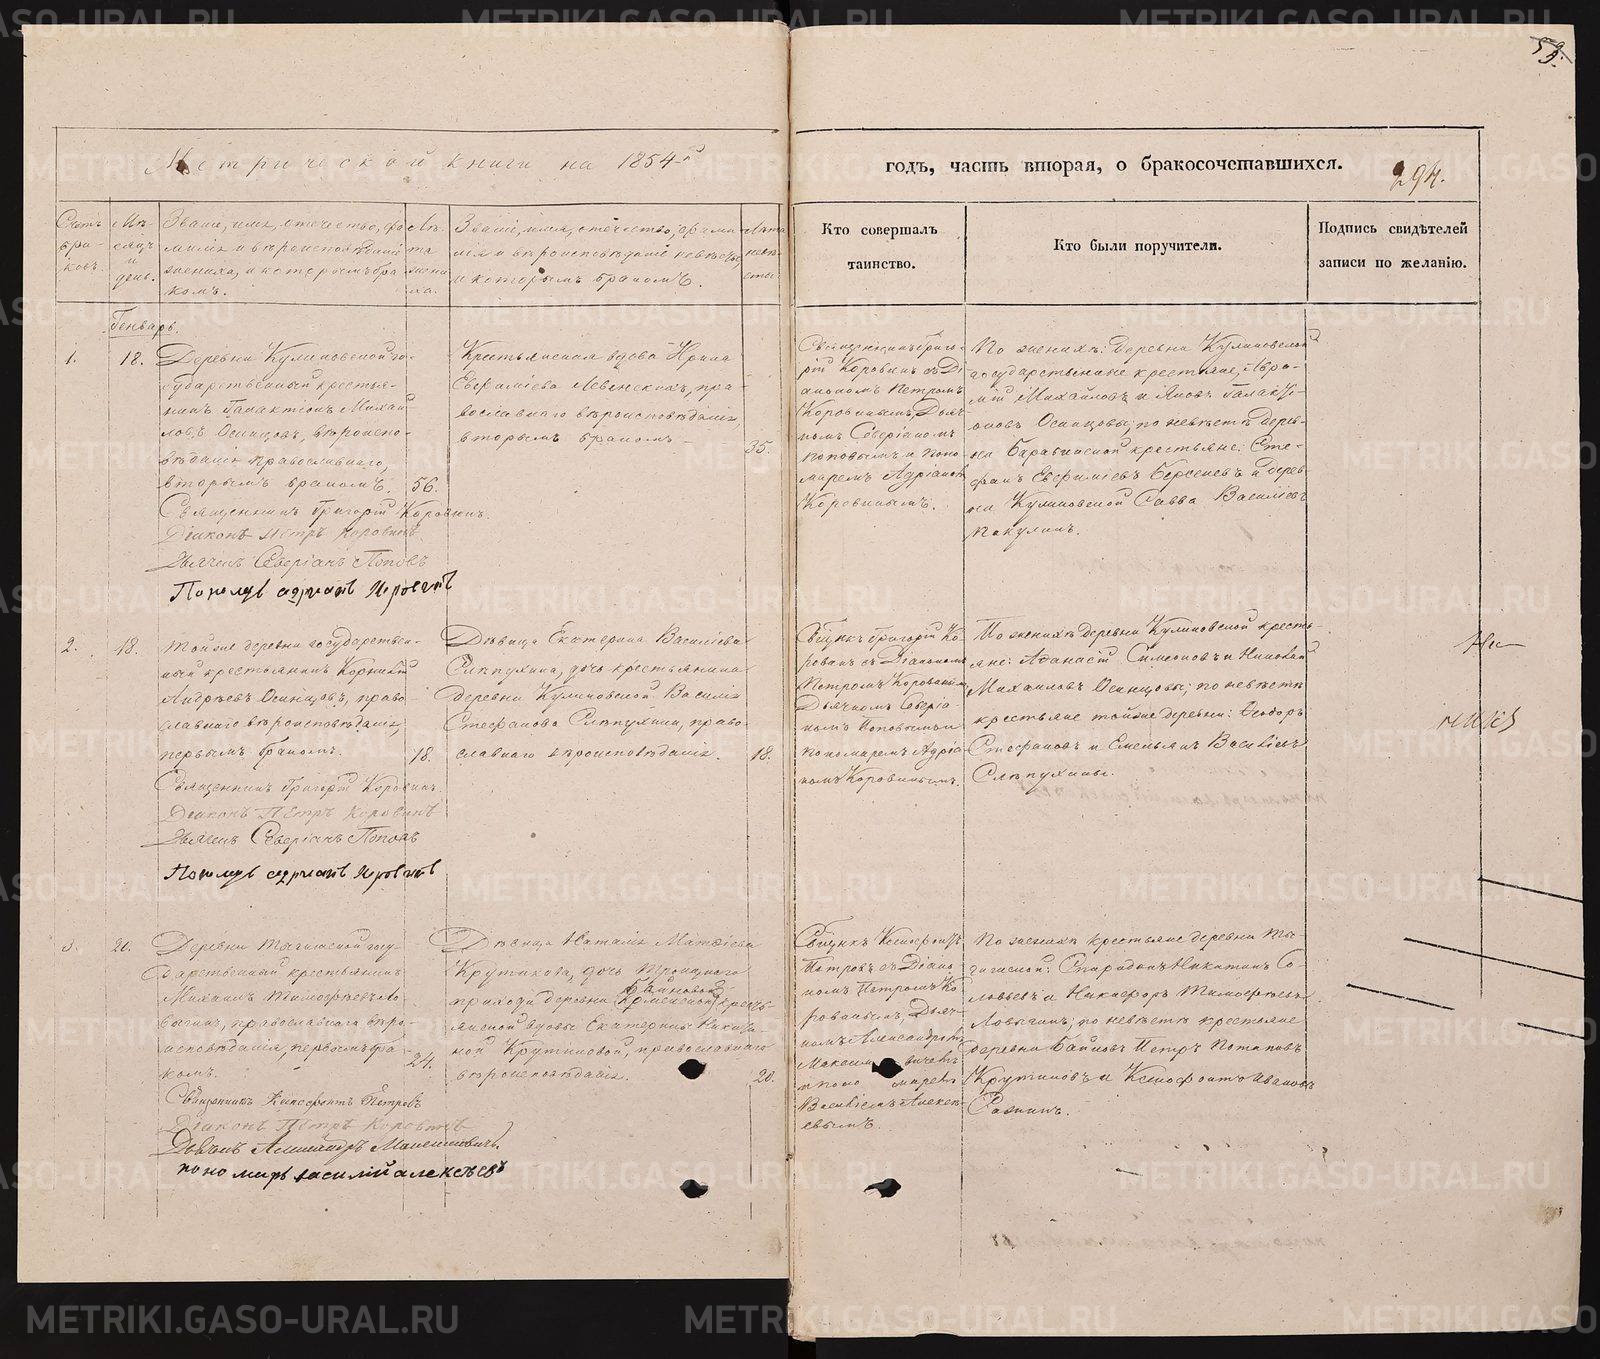 Метрической книги на 1854-й
годъ, часть вторая, о бракосочетавшихся.
294.
Счетъ браковъ.
Мѣсяцъ и день.
Званіе, имя, отчество, фамилія и вѣроисповѣданіе жениха, и которымъ бракомъ.
Лѣта жениха.
Званіе, имя, отечество, фамилія и вѣроисповѣданіе невѣсты, и которымъ бракомъ.
Лѣта невѣсты.
Кто совершалъ
таинство.
Кто были поручители.
Подпись свидѣтелей
записи по желанію.
Генварь.
1.
18.
Деревни Куликовской го-
сударственный крестья-
нинъ Галактіонъ Михай
ловъ Осинцовъ, вѣроиспо-
вѣданія православнаго,
вторымъ бракомъ. 56.
Священникъ Григорій Коровинъ.
Діаконъ Петръ Коровинъ
Дьячекъ Северіанъ Поповъ
Пономарь Адріанъ Коровинъ
Крестьянская вдова Ирина
Евфиміева Левенскихъ, пра-
вославнаго вѣроисповѣданія,
вторымъ бракомъ 35.
Священникъ Григо-
рій Коровинъ съ Ді-
акономъ Петромъ
Коровинымъ, Дьяч-
комъ Северіаномъ
Поповымъ и Поно-
маремъ Адріаномъ
Коровинымъ.
По женихѣ: Деревни Куликовской
государственные крестьяне, Авра-
мій Михайловъ и Яковъ Галакті-
оновъ Осинцовы, по невѣстѣ Дерев-
ни Барабинской крестьяне: Сте-
фанъ Евфиміевъ Берсеневъ и Дерев
ни Куликовской Савва Василіевъ
Пакулинъ.
2.
18.
Тойже деревни государствен-
ный крестьянинъ Корнилій
Андреевъ Осинцовъ, право-
славнаго вѣроисповѣданія,
первымъ бракомъ. 18.
Священникъ Григорій Коровинъ.
Діаконъ Петръ Коровинъ
Дьячекъ Северіанъ Поповъ
Пономарь Адріанъ Коровинъ
Дѣвица Екатерина Василіева
Слѣпухина, дочь крестьянина
Деревни Куликовской Василія
Стефанова Слѣпухина, право-
славнаго вѣроисповѣданія. 18.
Свщнкъ Григорій Ко-
ровинъ съ Діакономъ
Петромъ Коровинымъ
Дьячкомъ Северіа-
номъ Поповымъ и
пономаремъ Адріа
номъ Коровинымъ.
По женихѣ деревни Куликовской кресть-
яне: Афанасій Симеоновъ и Николай
Михаиловъ Осинцовы; по невѣстѣ
крестьяне тойже деревни: Ѳеодоръ
Стефановъ и Емельянъ Василіевъ
Слѣпухины.
3.
20.
Деревни госу-
дарственный крестьянинъ
Михаилъ Тимофѣевъ Ло-
выгинъ, православнаго вѣро-
исповѣданія, первымъ бра-
комъ. 24.
Священникъ Ксенофонтъ Петровъ
Діаконъ Петръ Коровинъ
Дьячокъ Александръ Максимовичъ
пономарь василій алексѣевъ
Дѣвица Наталія Матѳіева
Крутикова, дочь Троицкаго
Байновой
прихода деревни кресть-
янской вдовы Екатерины Никити-
ной Крутиковой, православнаго
вѣроисповѣданія. 20.
Свщнкъ Ксенофонтъ
Петровъ съ Діако
номъ Петромъ Ко
ровинымъ, Дьяч-
комъ Александромъ
Максимовичемъ
и пономаремъ
Василіемъ Алексѣ-
евымъ.
По женихѣ крестьяне деревни
Спиридонъ Никитинъ Со-
ловьевъ и Никифоръ Тимофѣевъ
Ловыгинъ; по невѣстѣ крестьяне
деревни Байновъ Петръ Потаповъ
Крутиковъ и Ксенофонтъ Ивановъ
METRIKI.GASO-URAL.RU